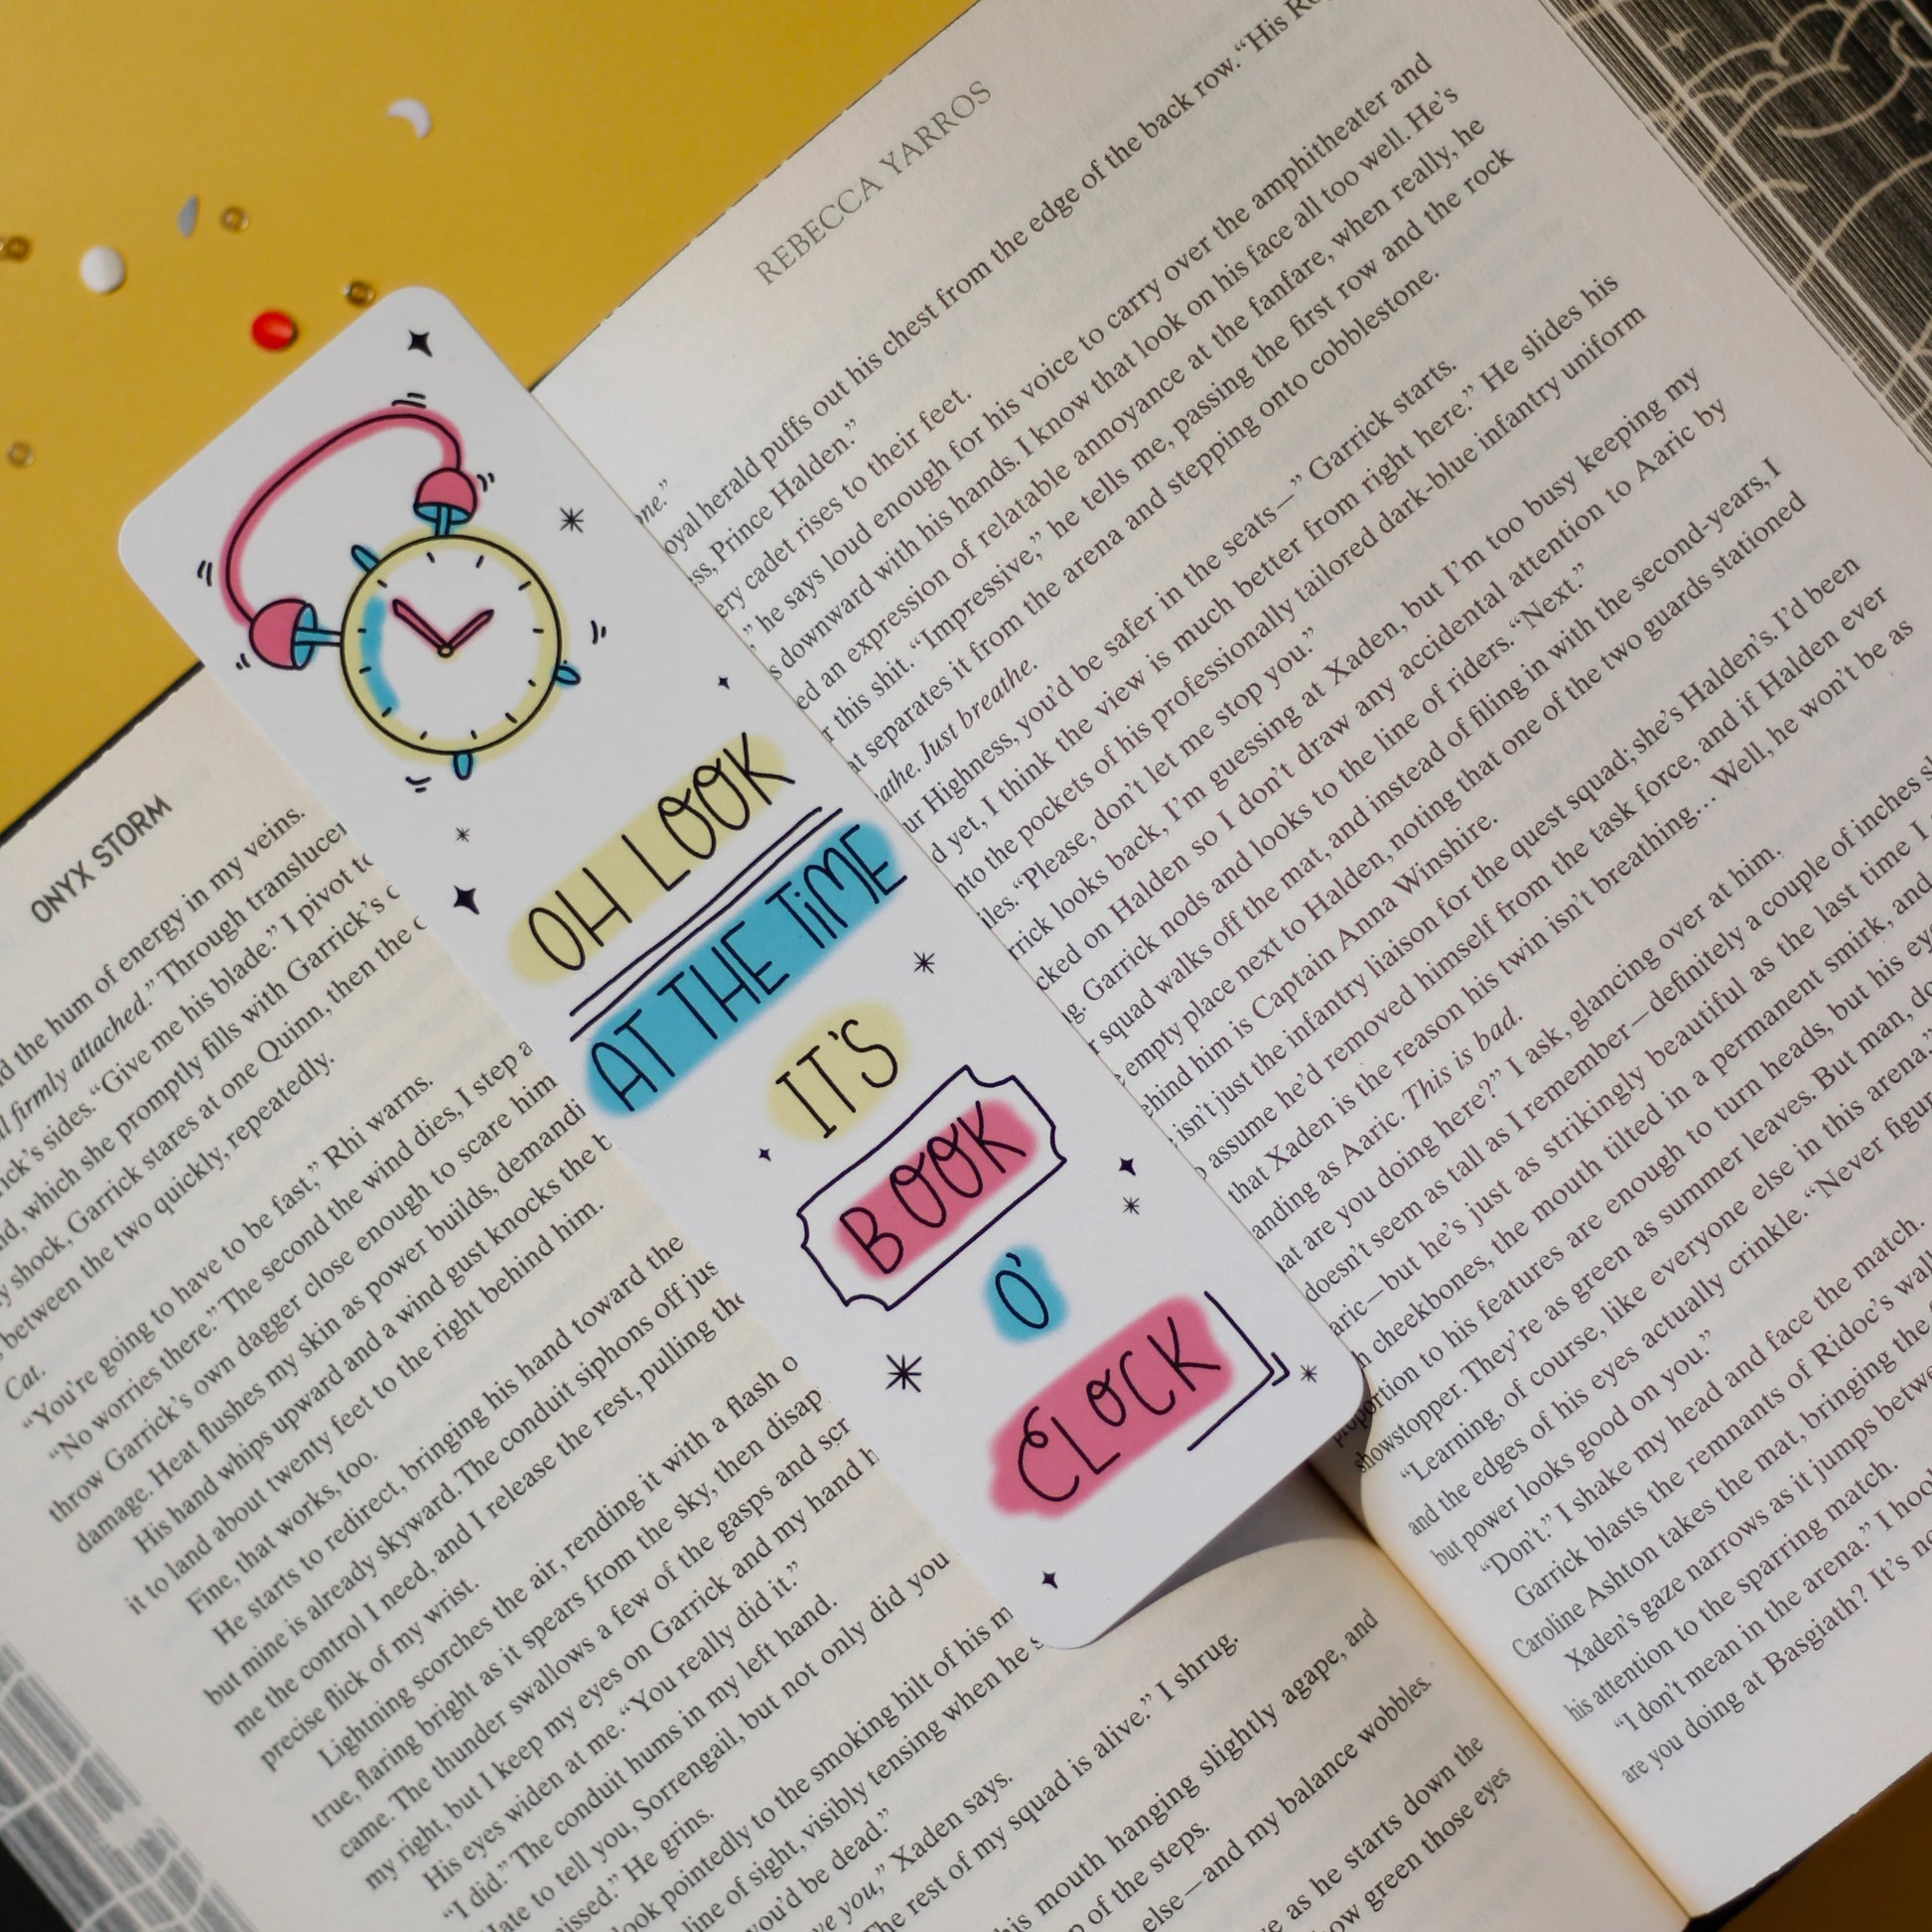 OH LOOK
AT THE TIME
IT'S
BOOK
O'
CLOCK
ONYX STORM
the hum of energy in my veins.
firmly attached.” Through
sides. “Give me his blade.” I pivot
which she promptly fills with Garrick's
shock, Garrick stares at one Quinn, then the
between the two quickly, repeatedly.
Cat.
“You're going to have to be fast,” Rhi warns.
“No worries there.” The second the wind dies, I step
throw Garrick's own dagger close enough to scare him
damage. Heat flushes my skin as power builds,
His hand whips upward and a wind gust knocks the
it to land about twenty feet to the right behind him.
Fine, that works, too.
He starts to redirect, bringing his hand toward the
but mine is already skyward. The conduit siphons off
me the control I need, and I release the rest, pulling
precise flick of my wrist.
Lightning scorches the air, rending it with a flash
true, flaring bright as it spears from the sky, then
came. The thunder swallows a few of the gasps and
my right, but I keep my eyes on Garrick and my hand
His eyes widen at me. “You really did it.”
“I did.” The conduit hums in my left hand.
to tell you, Sorrengail, but not only did you
He grins.
pointedly to the smoking hilt of his
line of sight, visibly tensing when he
you'd be dead.”
you,” Xaden says.
The rest of my squad is alive.” I shrug.
mouth hanging slightly agape, and
of the steps.
else—and my balance wobbles.
as he starts down the
green those eyes
REBECCA YARROS
herald puffs out his chest from the edge of the back row. “His
Prince Halden.”
cadet rises to their feet.
he says loud enough for his voice to carry over the amphitheater and
downward with his hands. I know that look on his face all too well. He's
an expression of relatable annoyance at the fanfare, when really, he
this shit. “Impressive,” he tells me, passing the first row and the rock
separates it from the arena and stepping onto cobblestone.
Just breathe.
Highness, you'd be safer in the seats—” Garrick starts.
yet, I think the view is much better from right here.” He slides his
the pockets of his professionally tailored dark-blue infantry uniform
“Please, don't let me stop you.”
looks back, I'm guessing at Xaden, but I'm too busy keeping my
on Halden so I don't draw any accidental attention to Aaric by
Garrick nods and looks to the line of riders. “Next.”
squad walks off the mat, and instead of filing in with the second-years, I
empty place next to Halden, noting that one of the two guards stationed
him is Captain Anna Winshire.
isn't just the infantry liaison for the quest squad; she's Halden's. I'd been
assume he'd removed himself from the task force, and if Halden ever
that Xaden is the reason his twin isn't breathing... Well, he won't be as
as Aaric. This is bad.
are you doing here?” I ask, glancing over at him.
doesn't seem as tall as I remember—definitely a couple of inches
but he's just as strikingly beautiful as the last time I
cheekbones, the mouth tilted in a permanent smirk, and
to his features are enough to turn heads, but his
showstopper. They're as green as summer leaves. But man,
“Learning, of course, like everyone else in this arena,”
and the edges of his eyes actually crinkle. “Never
but power looks good on you.”
“Don't.” I shake my head and face the match.
Garrick blasts the remnants of Ridoc's
Caroline Ashton takes the mat, bringing the
Xaden's gaze narrows as it jumps
his attention to the sparring match.
“I don't mean in the arena.” I
are you doing at Basgiath? It's